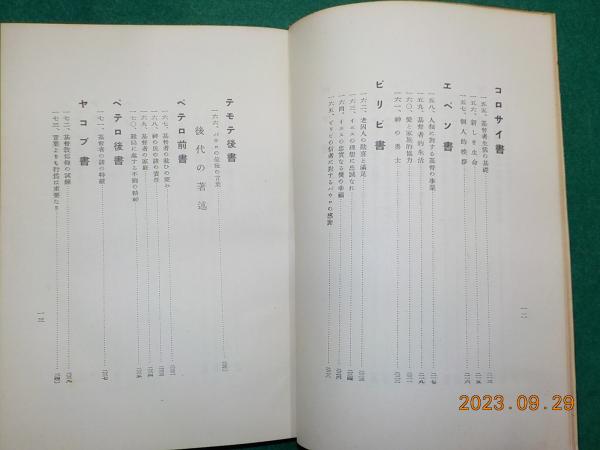 コロサイ書
一五五、基督者生活の基礎
一五六、新しき生命
一五七、個人的挨拶
エペソ書
一五八、人類に対する基督の事業
一五九、基督者的生活
一六〇、愛と家族的協力
一六一、神の勇士
ピリピ書
一六二、老囚人の歓喜と満足
一六三、イエスの理想に忠誠なれ
一六四、イエスの忠実なる僕の幸福
一六五、ピリピの信者に対するパウロの感謝
一二
テモテ後書
一六六、パウロの最後の言葉
後代の著述
ペテロ前書
一六七、基督者の救ひの望み
一六八、神の民の諸の責任
一六九、基督者の家庭
一七〇、難局に処する不動の精神
ペテロ後書
一七一、基督者の諸の特徴
ヤコブ書
一七二、基督教信仰の試練
一七三、言葉よりも行為は重要なり
一三
2023.09.29